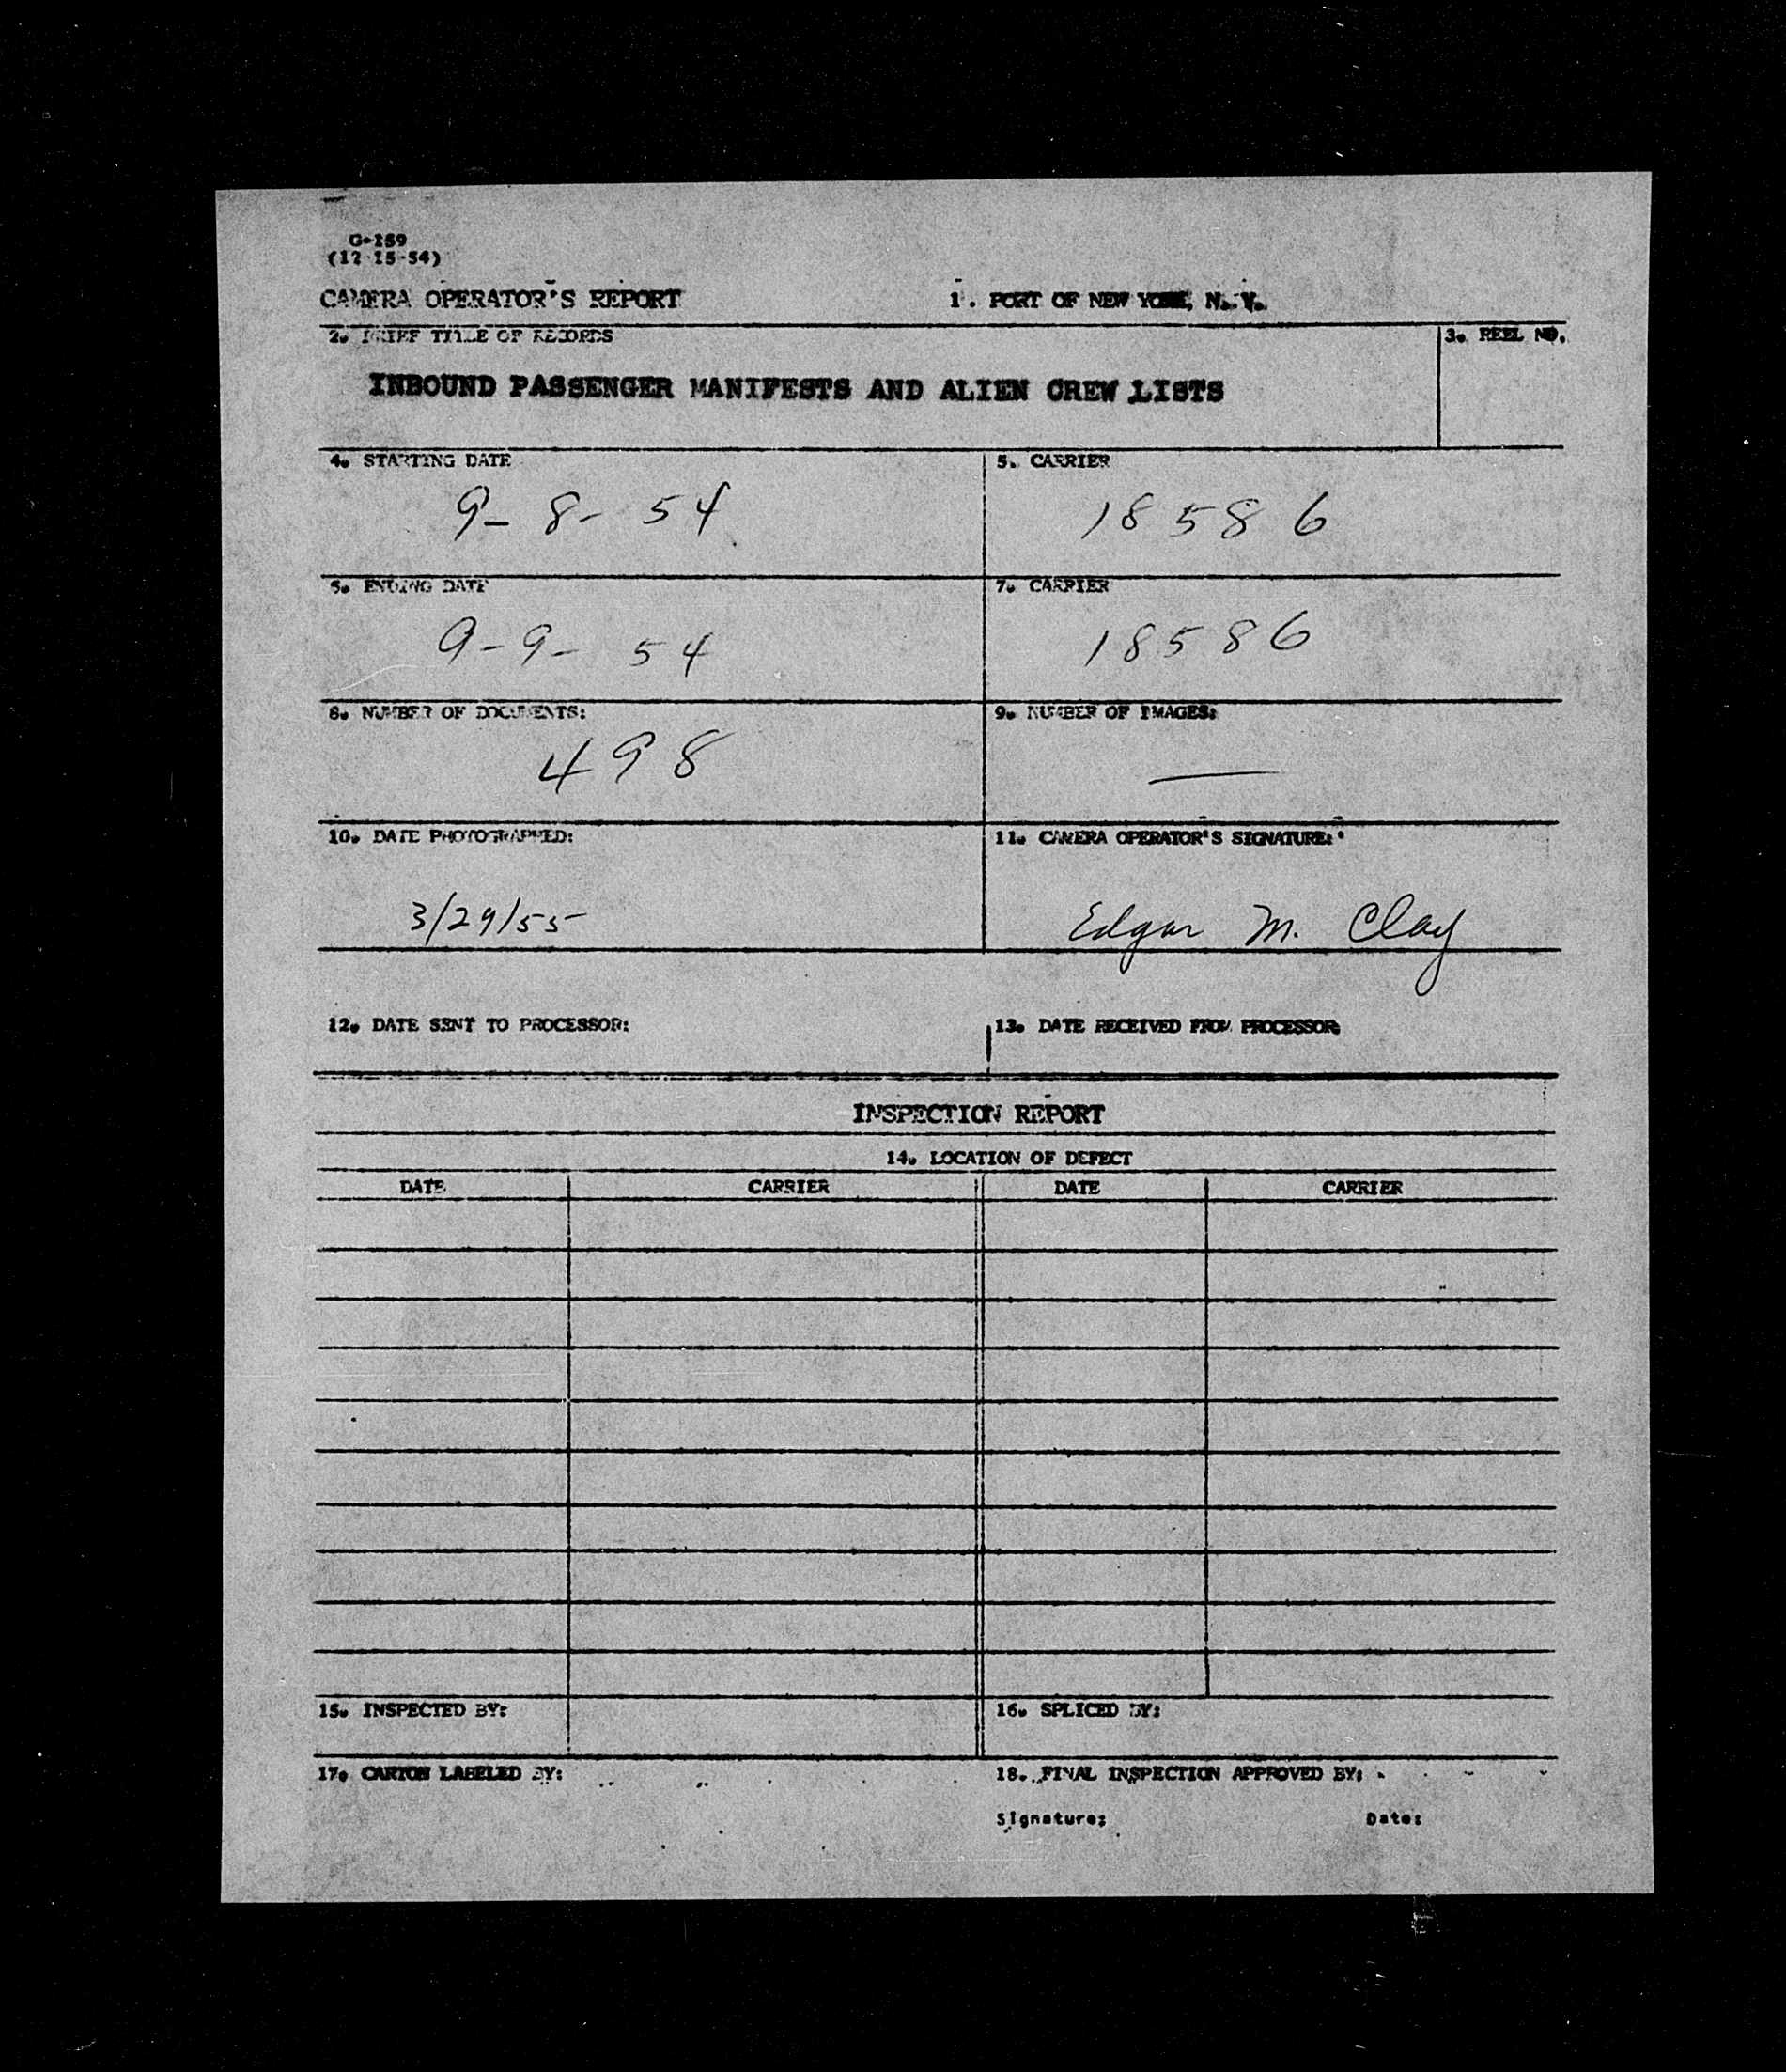 G-159
(12-15-54)
CAMERA OPERATOR'S REPORT
1. PORT OF NEW YORK, N. Y.
2. BRIEF TITLE OF RECORDS
3. REEL NO.
INBOUND PASSENGER MANIFESTS AND ALIEN CREW LISTS
4. STARTING DATE
5. CARRIER
9-8-54
18586
6. ENDING DATE
7. CARRIER
9-9-54
18586
8. NUMBER OF DOCUMENTS:
9. NUMBER OF IMAGES:
498
—
10. DATE PHOTOGRAPHED:
11. CAMERA OPERATOR'S SIGNATURE:
3/29/55
Edgar M. Clay
12. DATE SENT TO PROCESSOR:
13. DATE RECEIVED FROM PROCESSOR:
INSPECTION REPORT
14. LOCATION OF DEFECT
DATE CARRIER DATE CARRIER
15. INSPECTED BY:
16. SPLICED BY:
17. CARTON LABELED BY:
18. FINAL INSPECTION APPROVED BY:
Signature:
Date: